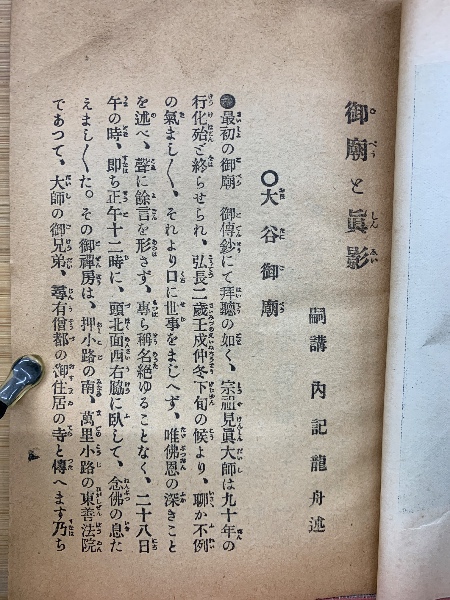 御廟と眞影
嗣講 內記龍舟述
〇大谷御廟
●最初の御廟 御傳鈔にて拜聽の如く、宗祖見眞大師は九十年の
行化殆ど終らせられ、弘長二歲壬戌仲冬下旬の候より、聊か不例
の氣まし〱、それより口に世事をまじへず、唯佛恩の深きこと
を述べ、聲に餘言を形さず、專ら稱名絕ゆることなく、二十八日
午の時、即ち正午十二時に、頭北面西右脇に臥して、念佛の息た
えまし〱た。その御禪房は、押小路の南、萬里小路の東善法院
であつて、大師の御兄弟、尋有僧都の御住居の寺と傳へます乃ち